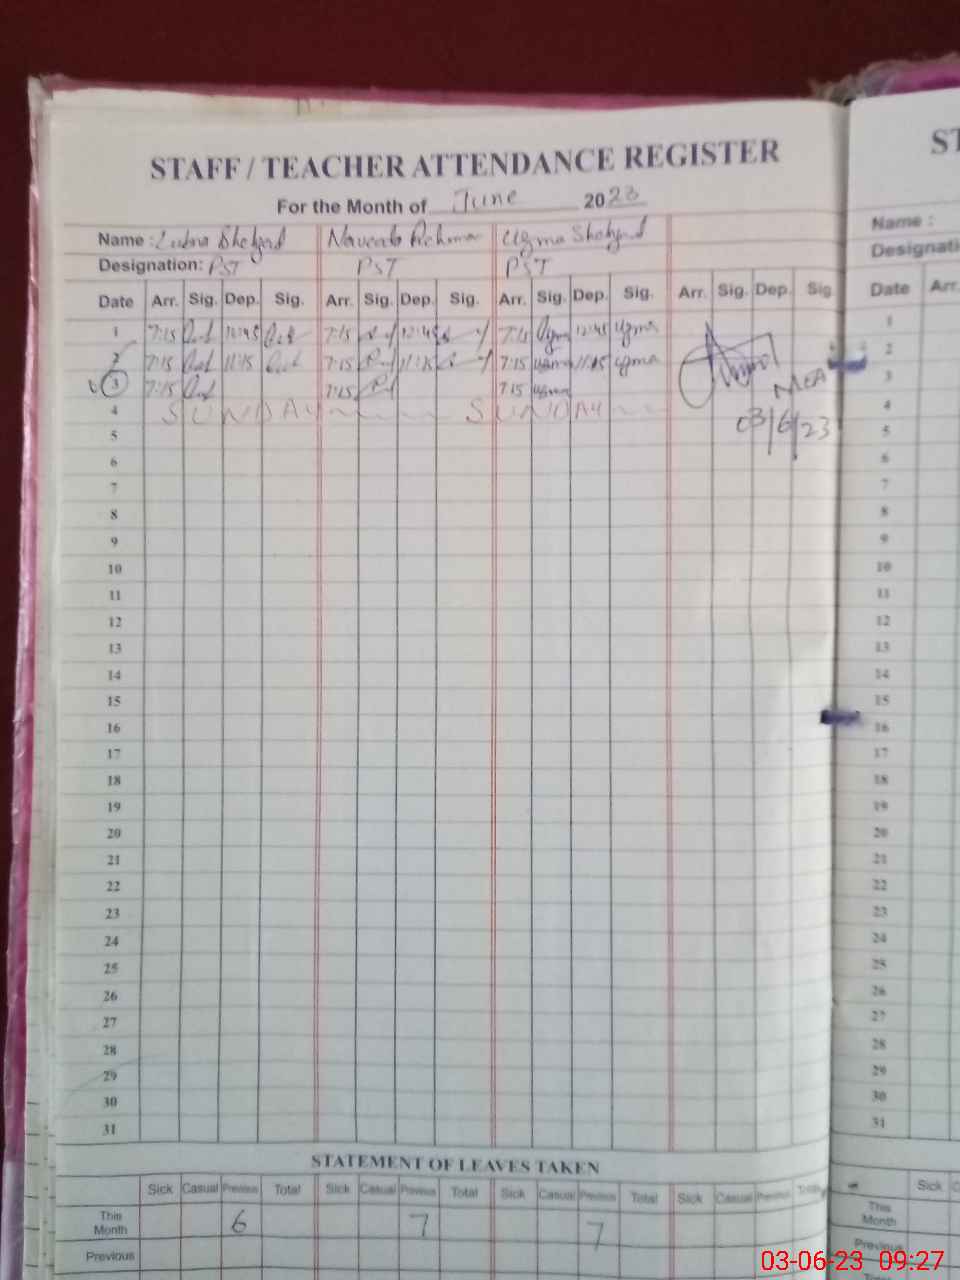 STAFF / TEACHER ATTENDANCE REGISTER
For the Month of June 2023
Name : Lubna Shehzad Naveeda Rehman Uzma Shehzad
Designation: PST PST PST
Date Arr. Sig. Dep. Sig. Arr. Sig. Dep. Sig. Arr. Sig. Dep. Sig. Arr. Sig. Dep. Sig
1 7:15 12:45 7:15 12:45 7:15 Uzma 12:45 Uzma
2 7:15 11:15 7:15 11:15 7:15 Uzma 11:15 Uzma
3 7:15 7:15 7:15 Uzma MEA
4 SUNDAY SUNDAY
03/6/23
5
6
7
8
9
10
11
12
13
14
15
16
17
18
19
20
21
22
23
24
25
26
27
28
29
30
31
STATEMENT OF LEAVES TAKEN
Sick Casual Previous Total Sick Casual Previous Total Sick Casual Previous Total Sick Casual Previous Total
This Month 6 7 7
Previous
ST
Name :
Designati
Date Arr.
1
2
3
4
5
6
7
8
9
10
11
12
13
14
15
16
17
18
19
20
21
22
23
24
25
26
27
28
29
30
31
Sick C
This Month
Previous
03-06-23 09:27